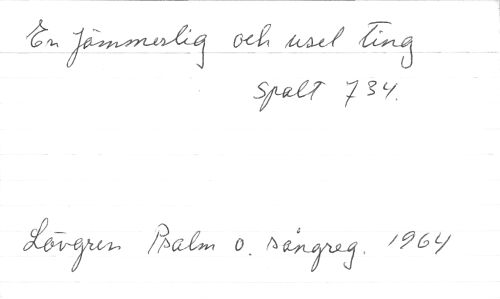 En jämmerlig och usel ting
Spalt 734.
Lövgren Psalm o. sångreg. 1964